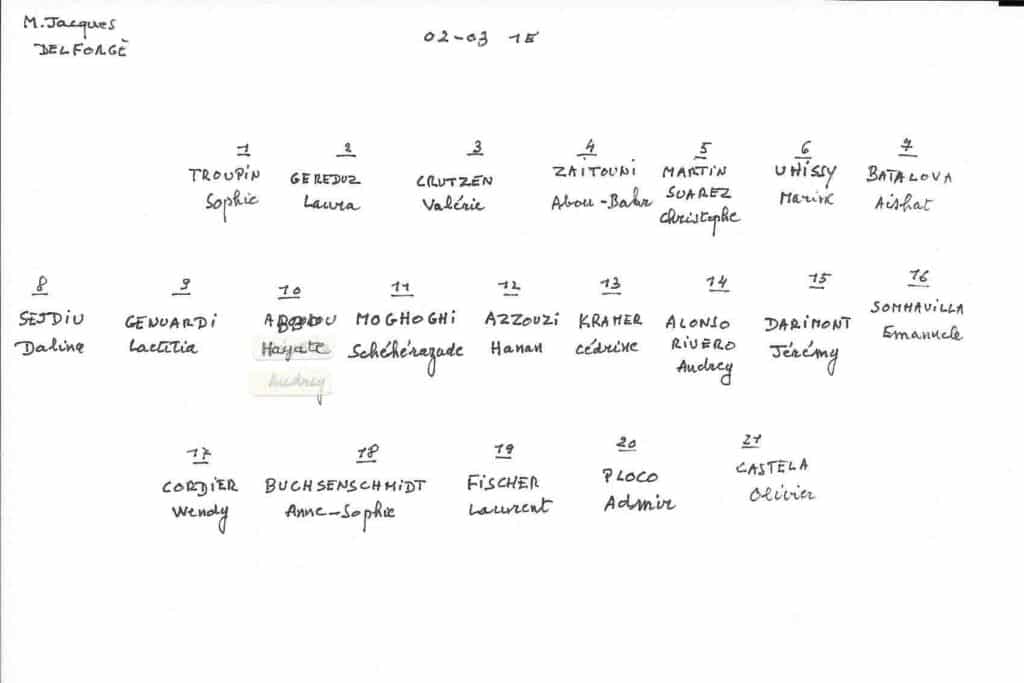 M. Jacques
DELFORGE
02-03 1E
1 2 3 4 5 6 7
TROUPIN GEREDUZ CRUTZEN ZAITOUNI MARTIN UHISSY BATALOVA
Sophie Laura Valérie Abou-Bakr SUAREZ Aishat
Christophe
8 9 10 11 12 13 14 15 16
SEJDIU GENUARDI MOGHOGHI AZZOUZI KRAMER ALONSO DARIMONT SOMMAVILLA
Daline Laetitia Hayate Schéhérazade Hanan Cédrine RIVERO Jérémy Emanuele
Audrey Audrey
17 18 19 20 21
CORDIER BUCHSENSCHMIDT FISCHER PLOCO CASTELA
Wendy Anne-Sophie Laurent Admir Olivier